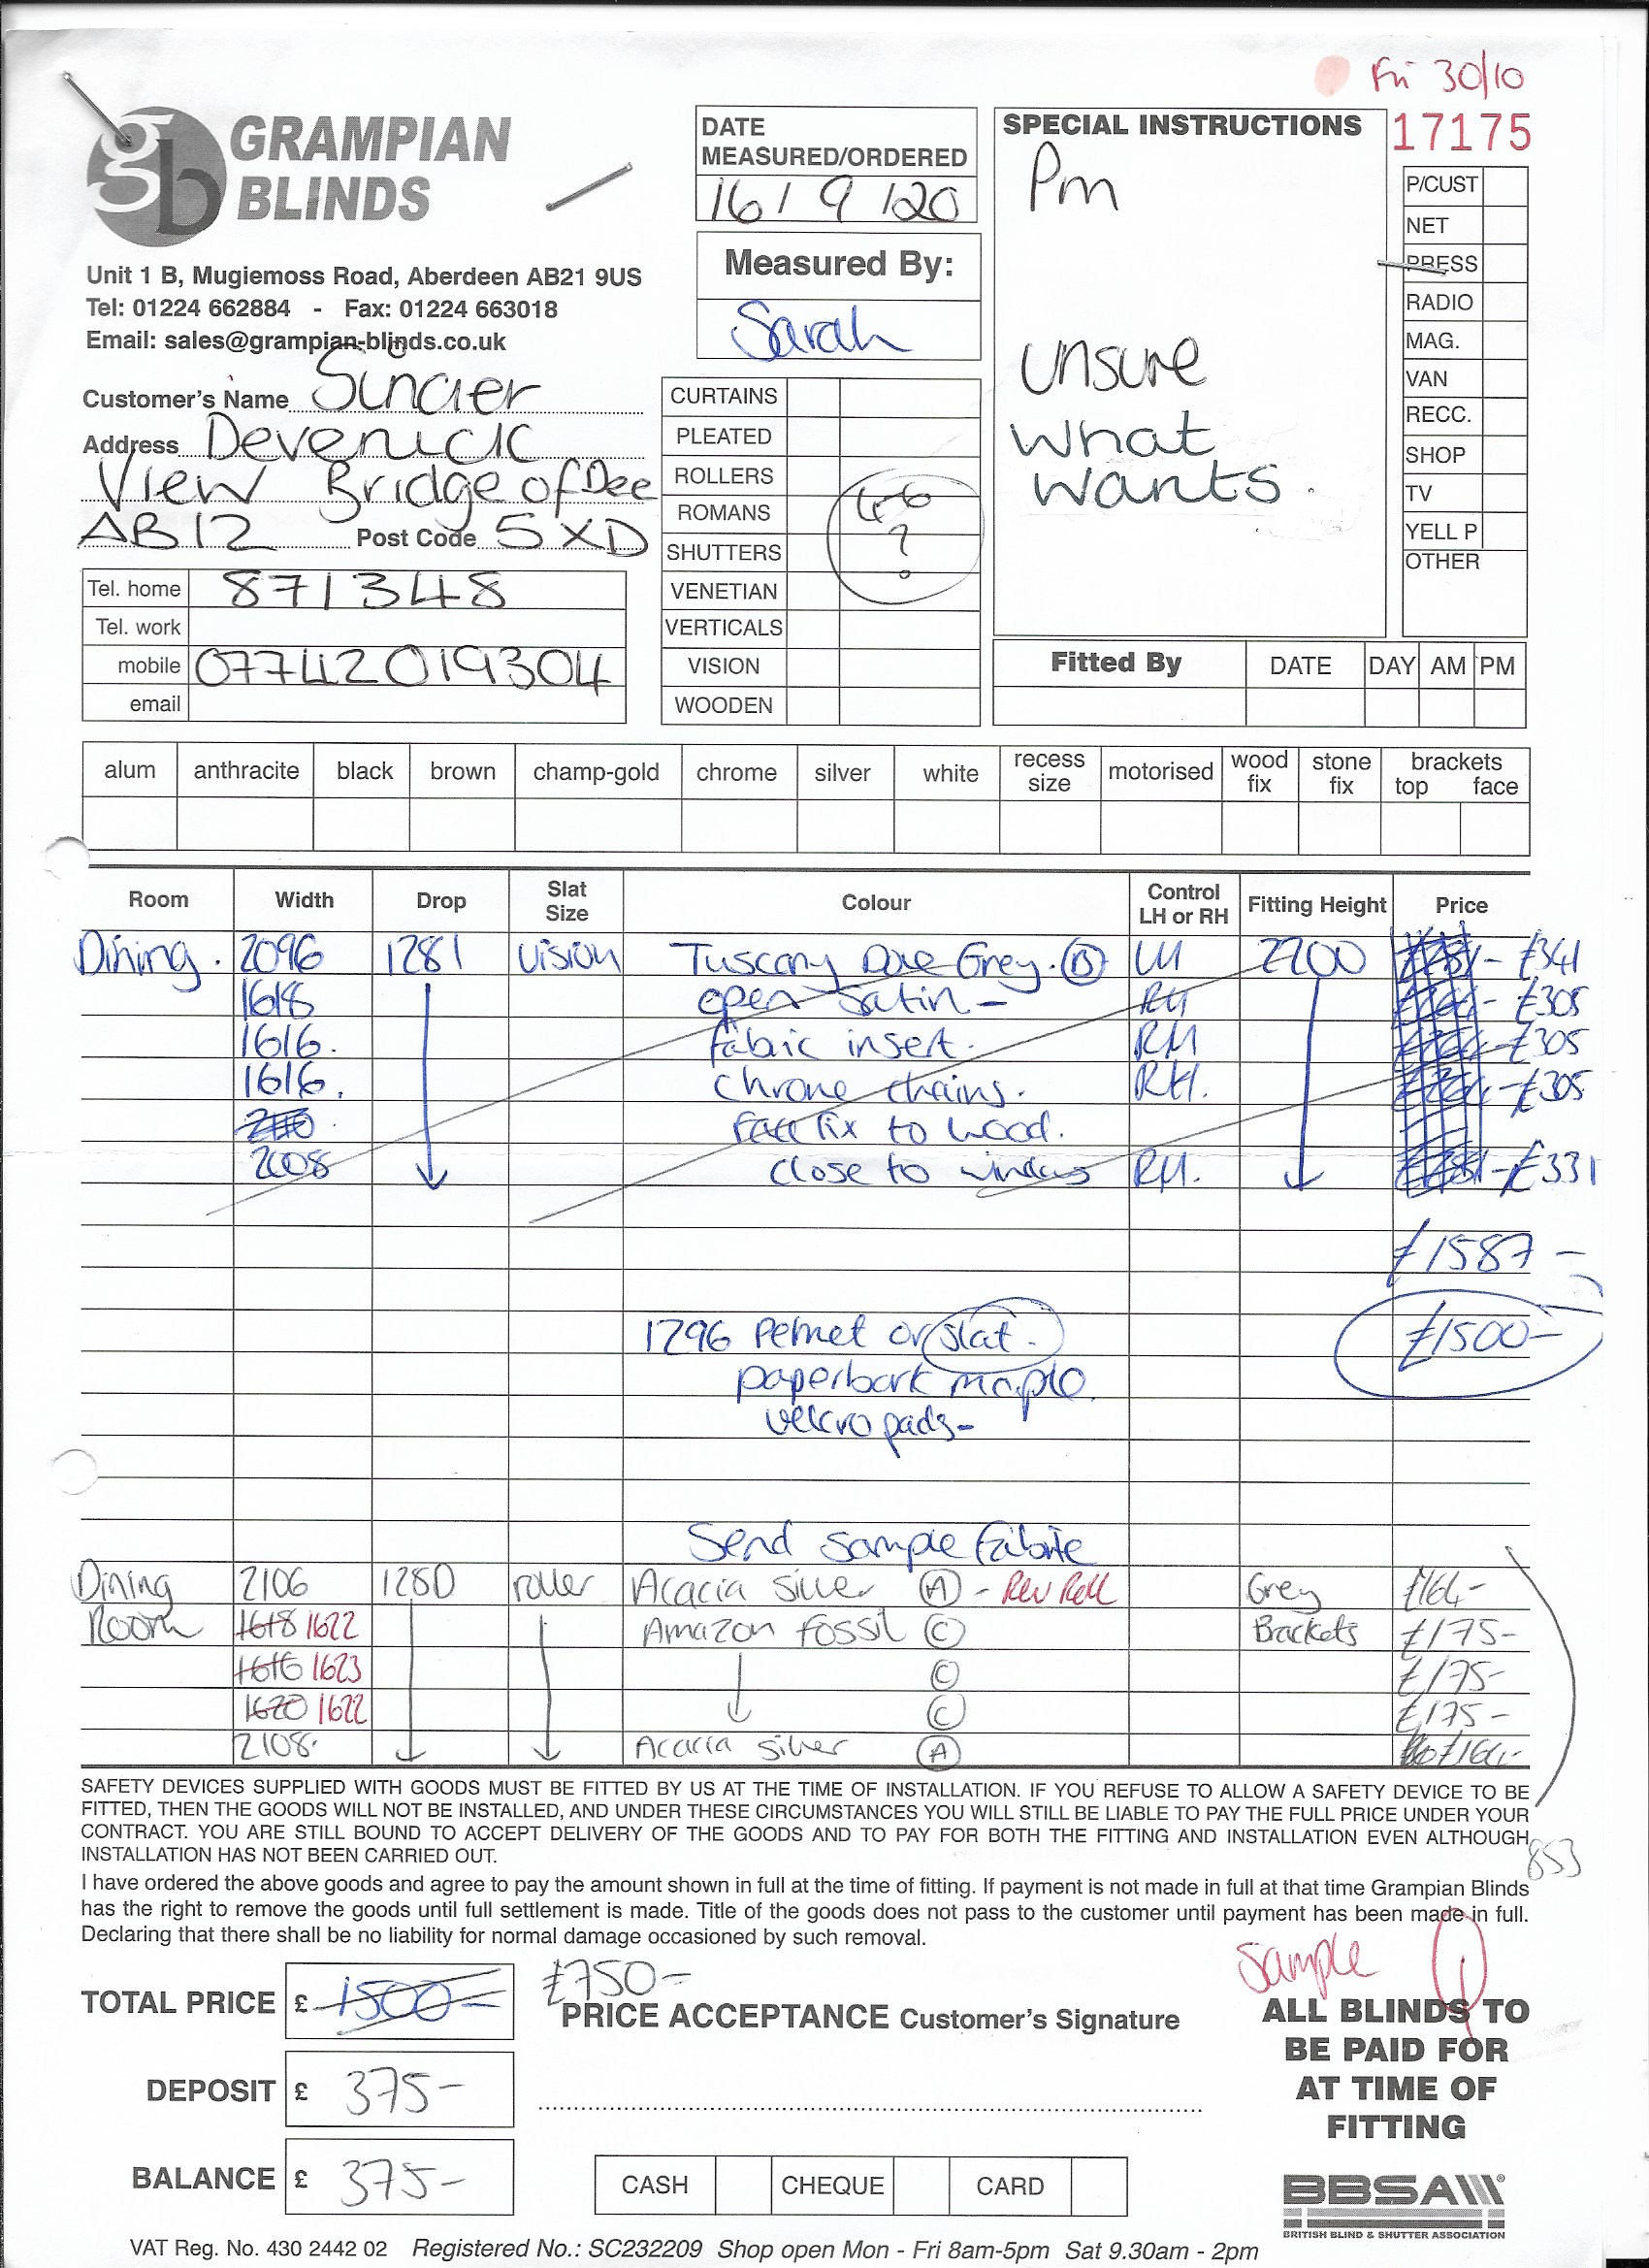 Fri 30/10
GRAMPIAN
BLINDS
Unit 1 B, Mugiemoss Road, Aberdeen AB21 9US
Tel: 01224 662884 - Fax: 01224 663018
Email: sales@grampian-blinds.co.uk
DATE
MEASURED/ORDERED
16 / 9 / 20
Measured By:
Sarah
SPECIAL INSTRUCTIONS
Pm
unsure
what
wants.
17175
P/CUST
NET
PRESS
RADIO
MAG.
VAN
RECC.
SHOP
TV
YELL P
OTHER
Customer's Name
Address Devenick
View Bridge of Dee
AB12 Post Code 5XD
Tel. home 871348
Tel. work
mobile 07742019304
email
CURTAINS
PLEATED
ROLLERS
ROMANS
SHUTTERS
VENETIAN
VERTICALS
VISION
WOODEN
?
Fitted By DATE DAY AM PM
alum anthracite black brown champ-gold chrome silver white recess size motorised wood fix stone fix brackets top face
Room Width Drop Slat Size Colour Control LH or RH Fitting Height Price
Dining. 2096 1281 vision Tuscany Dove Grey. (B) LH 2200 £341
1618 open satin - RH £305
1616. fabric insert. RH £305
1616. chrome chains. RH. £305
face fix to wood.
2008 close to window RH. £331
£1587 -
1296 Pelmet or slat. £1500-
paperbark maple
velcro pads-
Send sample fabric
Dining 2106 1280 roller Acacia silver (A) - Rev Roll Grey £164-
Room 1618 1622 Amazon fossil (C) Brackets £175-
1616 1623 (C) £175-
1620 1622 (C) £175-
2108. Acacia silver (A) £164-
SAFETY DEVICES SUPPLIED WITH GOODS MUST BE FITTED BY US AT THE TIME OF INSTALLATION. IF YOU REFUSE TO ALLOW A SAFETY DEVICE TO BE
FITTED, THEN THE GOODS WILL NOT BE INSTALLED, AND UNDER THESE CIRCUMSTANCES YOU WILL STILL BE LIABLE TO PAY THE FULL PRICE UNDER YOUR
CONTRACT. YOU ARE STILL BOUND TO ACCEPT DELIVERY OF THE GOODS AND TO PAY FOR BOTH THE FITTING AND INSTALLATION EVEN ALTHOUGH
INSTALLATION HAS NOT BEEN CARRIED OUT.
853
I have ordered the above goods and agree to pay the amount shown in full at the time of fitting. If payment is not made in full at that time Grampian Blinds
has the right to remove the goods until full settlement is made. Title of the goods does not pass to the customer until payment has been made in full.
Declaring that there shall be no liability for normal damage occasioned by such removal.
Sample
TOTAL PRICE £ 1500-
£750-
PRICE ACCEPTANCE Customer's Signature
DEPOSIT £ 375-
BALANCE £ 375-
CASH CHEQUE CARD
ALL BLINDS TO
BE PAID FOR
AT TIME OF
FITTING
BBSA
BRITISH BLIND & SHUTTER ASSOCIATION
VAT Reg. No. 430 2442 02 Registered No.: SC232209 Shop open Mon - Fri 8am-5pm Sat 9.30am - 2pm